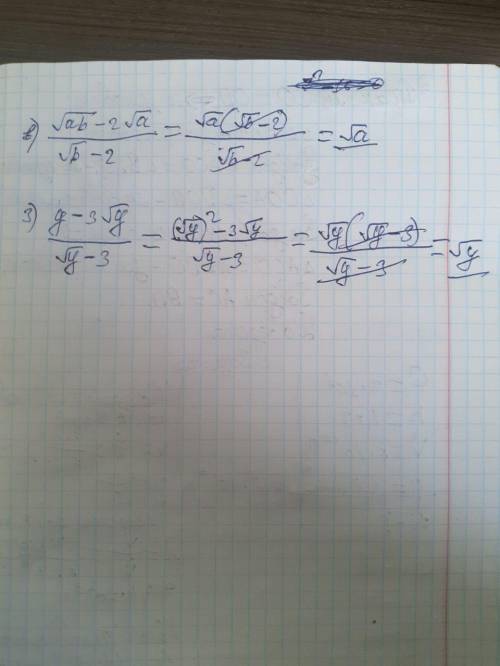 в) (√ab - 2√a)/(√b - 2) = (√a(√b - 2))/(√b - 2) = √a
з) (y - 3√y)/(√y - 3) = ((√y)² - 3√y)/(√y - 3) = (√y(√y - 3))/(√y - 3) = √y